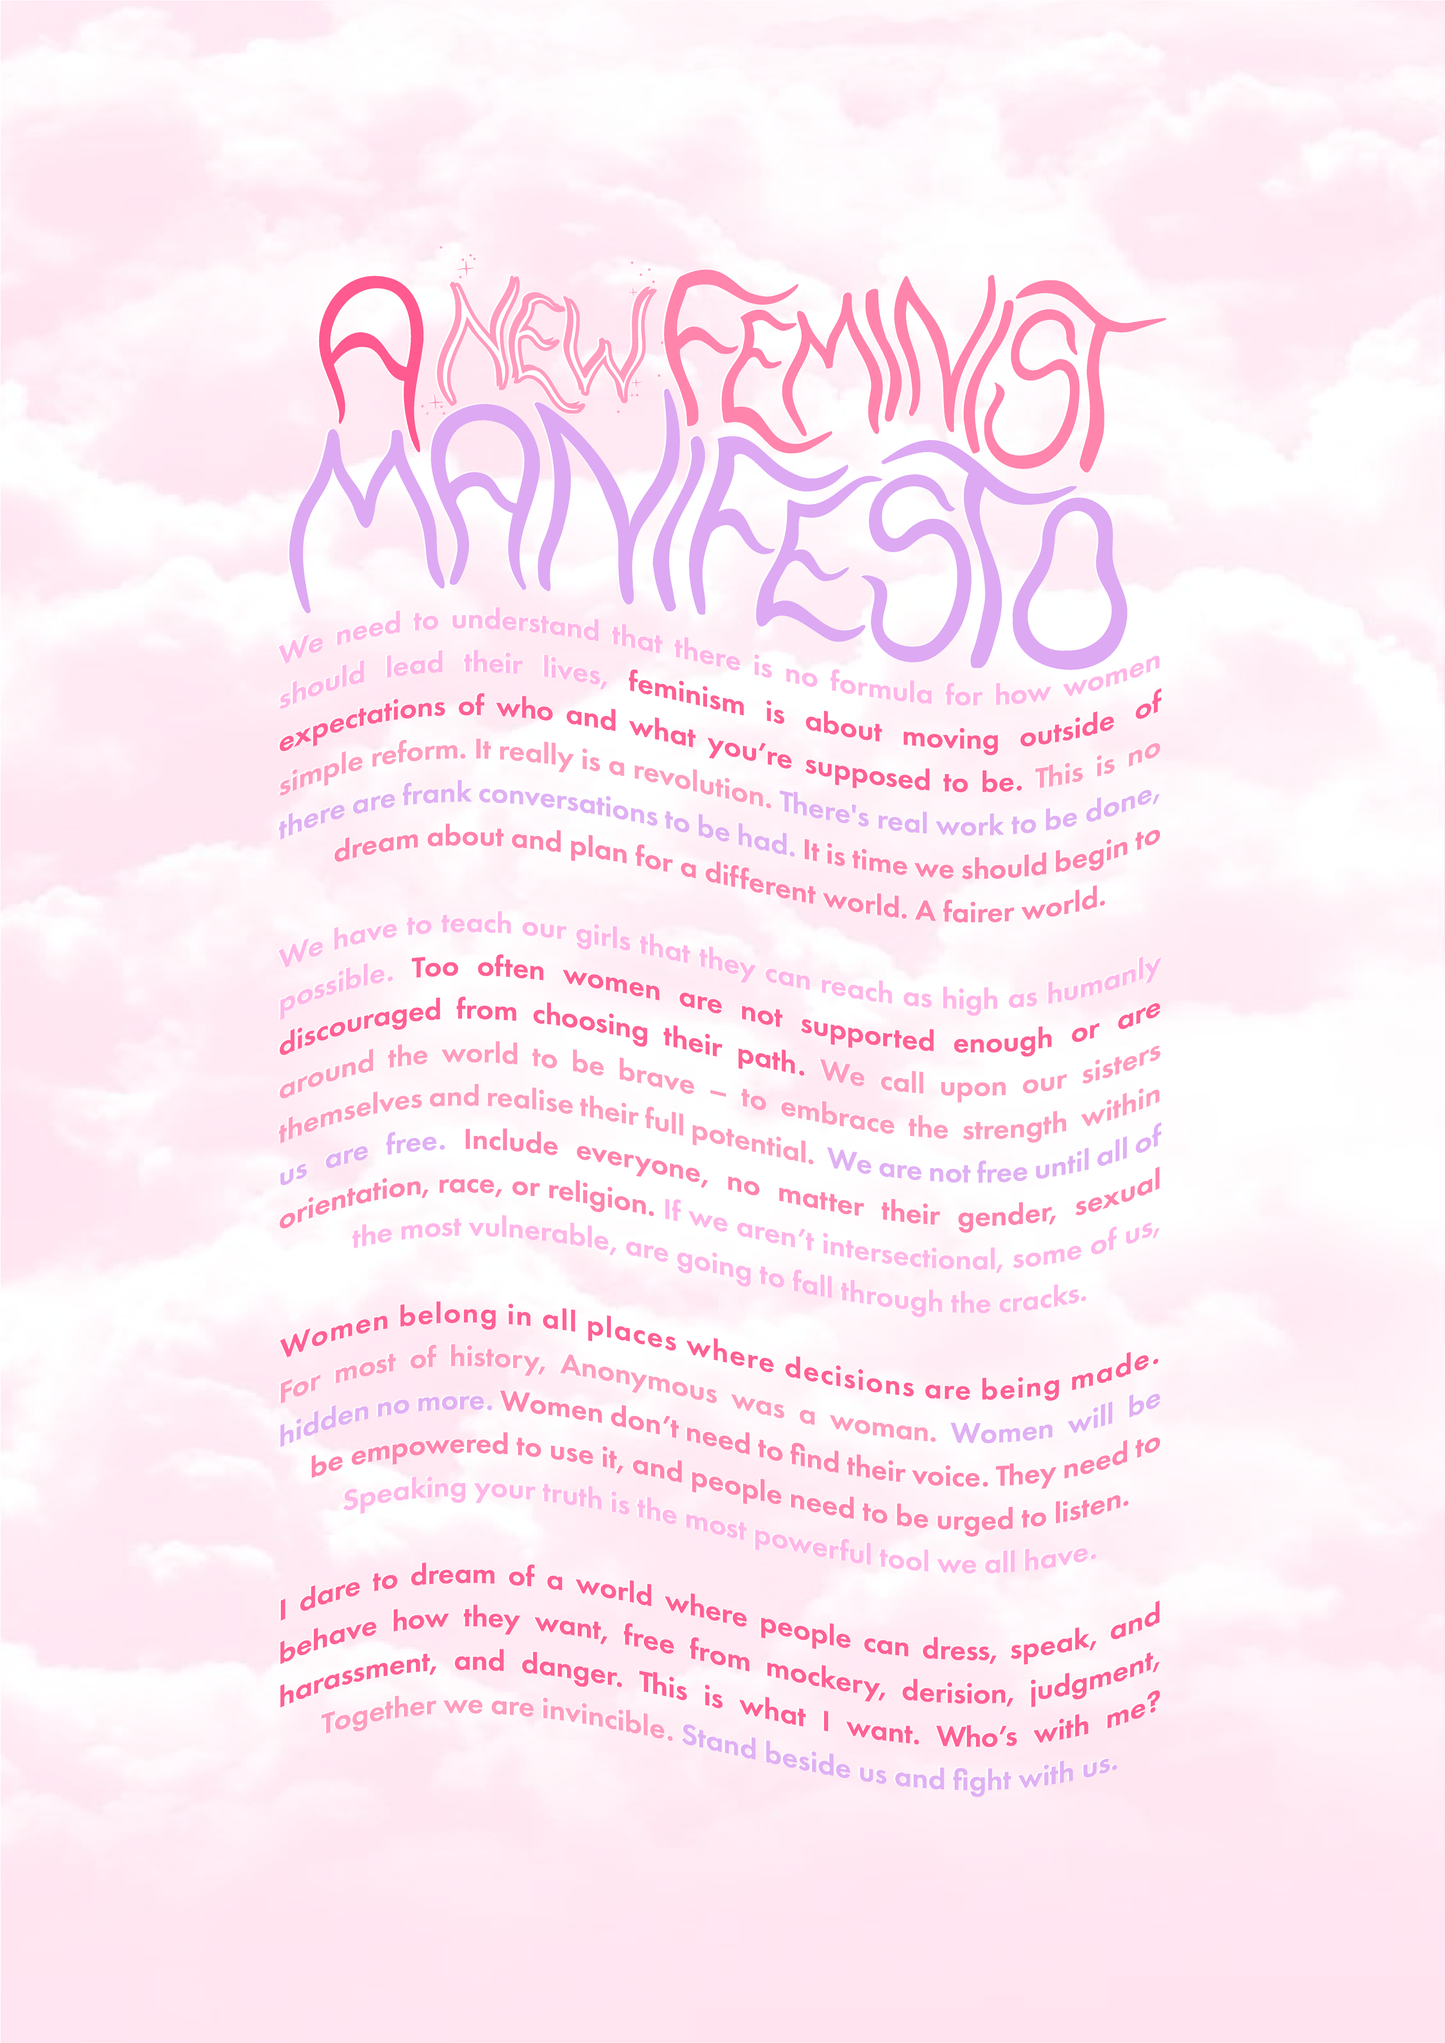 A NEW FEMINIST
MANIFESTO
We need to understand that there is no formula for how women
should lead their lives, feminism is about moving outside of
expectations of who and what you’re supposed to be. This is no
simple reform. It really is a revolution. There's real work to be done,
there are frank conversations to be had. It is time we should begin to
dream about and plan for a different world. A fairer world.
We have to teach our girls that they can reach as high as humanly
possible. Too often women are not supported enough or are
discouraged from choosing their path. We call upon our sisters
around the world to be brave – to embrace the strength within
themselves and realise their full potential. We are not free until all of
us are free. Include everyone, no matter their gender, sexual
orientation, race, or religion. If we aren’t intersectional, some of us,
the most vulnerable, are going to fall through the cracks.
Women belong in all places where decisions are being made.
For most of history, Anonymous was a woman. Women will be
hidden no more. Women don’t need to find their voice. They need to
be empowered to use it, and people need to be urged to listen.
Speaking your truth is the most powerful tool we all have.
I dare to dream of a world where people can dress, speak, and
behave how they want, free from mockery, derision, judgment,
harassment, and danger. This is what I want. Who’s with me?
Together we are invincible. Stand beside us and fight with us.